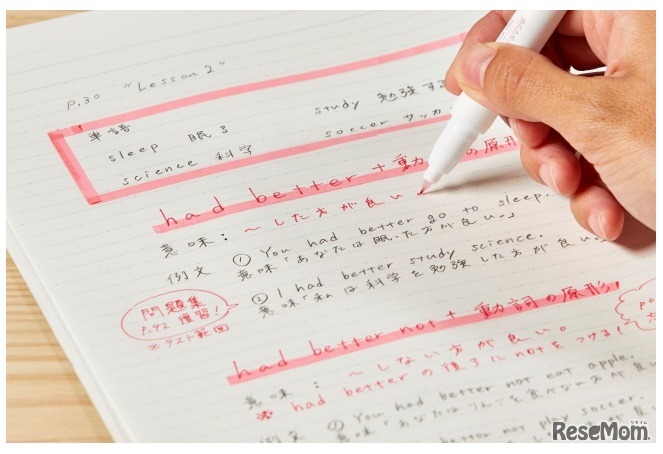 P.30 "Lesson 2"
単語
sleep 眠る
study 勉強する
science 科学
soccer サッカ
had better + 動詞の原形
〜した方が良い
意味：
例文 ① You had better go to sleep.
意味「あなたは眠った方が良い。」
② I had better study science.
意味「私は科学を勉強した方が良い。」
問題集
P.42 復習！
※テスト範囲
had better not + 動詞の原形
意味： 〜しない方が良い。
※ had betterの後ろにnotをつける！
例文 ① You had better not eat apple.
意味「あなたはりんごを食べない方が良い
better not play soccer.
ReseMom